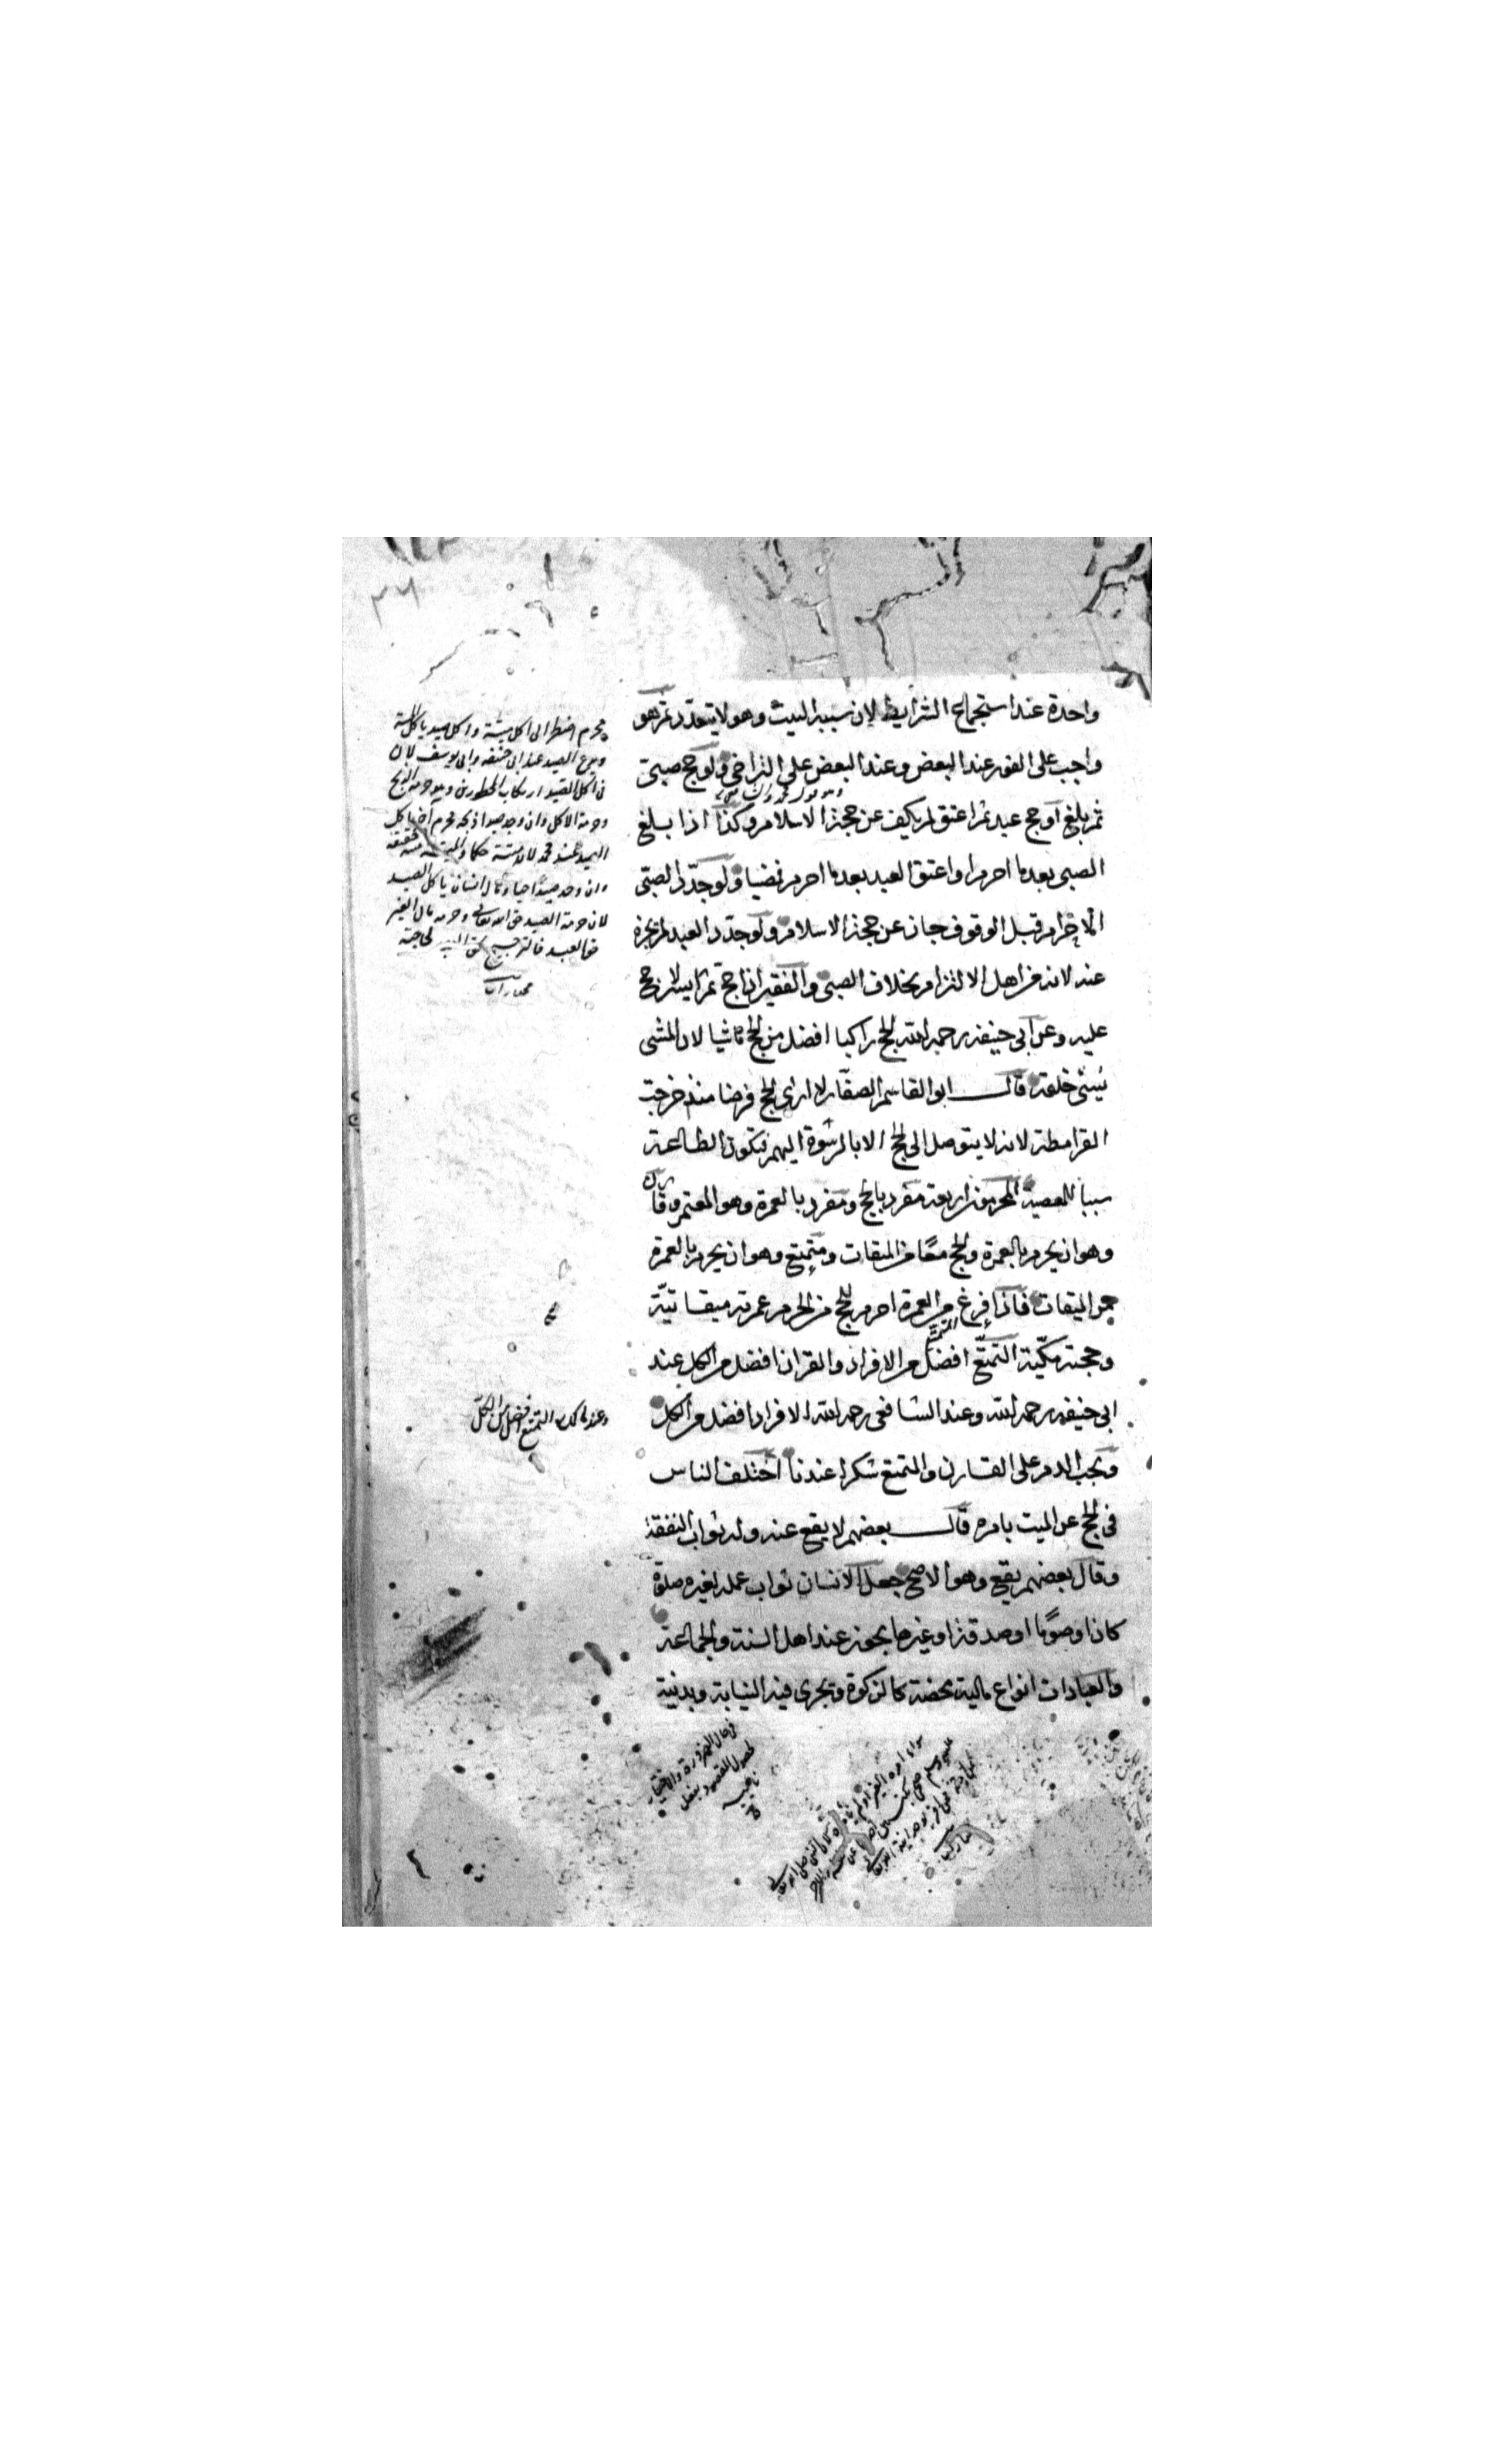 واحدة عند استجماع الشرايط لان سببه البيت وهو لا يتعدد ثم هو
واجب على الفور عند البعض وعند البعض على التراخي ولو حج صبي
ثم بلغ او حج عبد ثم اعتق لم يكف عن حجة الاسلام وكذا اذا بلغ
الصبي بعدما احرم او اعتق العبد بعدما احرم فمضيا ولو جدد الصبي
الاحرام قبل الوقوف جاز عن حجة الاسلام ولو جدد العبد لم يجزه
عنه لانه من اهل الالتزام بخلاف الصبي والفقير اذا حج ثم ايسر لا حج
عليه وعن ابي حنيفة رحمه الله الحج راكبا افضل من الحج ماشيا لان المشي
يسئ خلقه قال ابو القاسم الصفار لا ارى الحج فرضا منذ خرجت
القرامطة لانه لا يتوصل الى الحج الا بالرشوة اليهم فتكون الطاعة
سببا للمعصية المحرمون اربعة مفرد بالحج ومفرد بالعمرة وهو المعتمر وقارن
وهو ان يحرم بالعمرة والحج معا من الميقات ومتمتع وهو ان يحرم بالعمرة
من الميقات فاذا فرغ من العمرة احرم للحج من الحرم عمرته ميقاتية
وحجته مكية التمتع افضل من الافراد والقران افضل من الكل عند
ابي حنيفة رحمه الله وعند الشافعي رحمه الله الافراد افضل من الكل
ويجب الدم على القارن والمتمتع شكرا عندنا اختلف الناس
في الحج عن الميت بامره قال بعضهم لا يقع عنه وله ثواب النفقة
وقال بعضهم يقع وهو الاصح جعل الانسان ثواب عمله لغيره صلوة
كان او صوما او صدقة او غيرها يجوز عند اهل السنة والجماعة
والعبادات انواع مالية محضة كالزكوة وتجري فيه النيابة وبدنية
محرم اضطر الى اكل ميتة واكل صيد ياكل الميتة
الصيد عند ابي حنيفة وابي يوسف لان
في اكل الصيد ارتكاب المحظورين
وحرمة الاكل وان وجد صيدا ذبحه محرم آخر ياكل
الصيد عند محمد لانه ميتة حكما والميتة حقيقة
وان وجد صيدا حيا ومال انسان ياكل الصيد
لان حرمة الصيد حق الله تعالى وحرمة مال الغير
حق العبد فالترجيح لحق العبد لحاجته
وعند مالك التمتع افضل من الكل